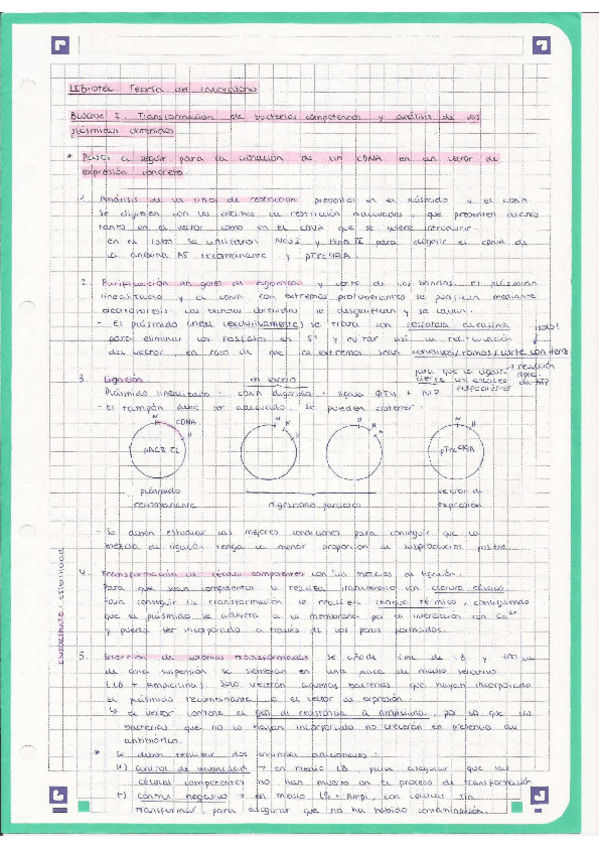 Bloque I. Transformación de bacterias competentes y análisis de los
plásmidos obtenidos
* Pasos a seguir para la clonación de un cDNA en un vector de
expresión concreto
1. Análisis de los sitios de restricción presentes en el plásmido y el cDNA
Se digieren con las enzimas de restricción adecuadas, que presenten dianas
tanto en el vector como en el cDNA que se quiere introducir.
en el labo se utilizaron NcoI y para digerir el cDNA de
la anexina A5 recombinante y pTrc99A.
2. Purificación en geles de agarosa y corte de las bandas. El plásmido
linealizado y el cDNA con extremos protuberantes se purifican mediante
electroforesis. Las bandas obtenidas se y se lavan.
- El plásmido lineal (exclusivamente) se trata con fosfatasa alcalina
para eliminar los fosfatos en 5' y evitar así la
del vector, en caso de que los extremos sean
para que la ligasa
3. Ligación en exceso
Plásmido linealizado + cDNA digerido + ligasa + ATP
- El tampón debe ser adecuado. Se pueden obtener:
N
cDNA
H
N
H
N
H
pTrc99A
plásmido
recombinante
digestiones parciales
vector de
expresión
- Se deben estudiar las mejores condiciones para conseguir que la
mezcla de ligación tenga la menor proporción de subproductos posible.
IMPORTANTE: esterilidad
4. Transformación de células competentes con las mezclas de ligación.
Para que sean competentes se realiza tratamiento con cloruro cálcico.
Para conseguir su transformación se realiza choque térmico, consiguiendo
que el plásmido se adhiera a la membrana por la interacción con Ca2+
y pueda ser incorporado a través de los poros formados.
5. Selección de colonias transformadas se añade 1 mL de LB y
de esta suspensión se siembran en una placa de medio selectivo
(LB + Ampicilina). Sólo crecerán aquellas bacterias que hayan incorporado
el plásmido recombinante o el vector de expresión.
↳ el vector contiene el gen de resistencia a ampicilina, por lo que las
bacterias que no lo hayan incorporado no crecerán en presencia del
antibiótico.
* Se deben realizar dos controles adicionales:
(+) control de viabilidad → en medio LB, para asegurar que las
células competentes no han muerto en el proceso de transformación
(-) control negativo → en medio LB + Ampi, con células sin
transformar, para asegurar que no ha habido contaminación.